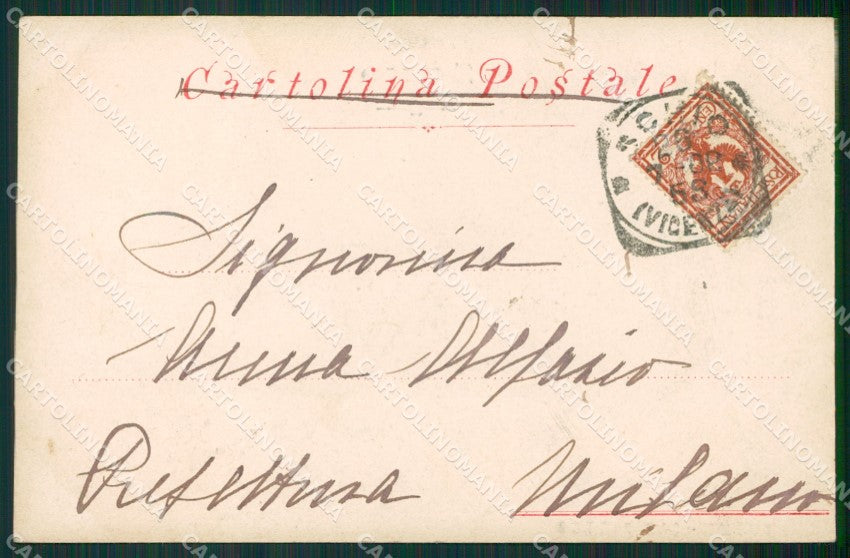 Cartolina Postale
(VICENZA)
Signorina
Anna Alfazio
Prefettura Milano
CARTOLINOMANIA